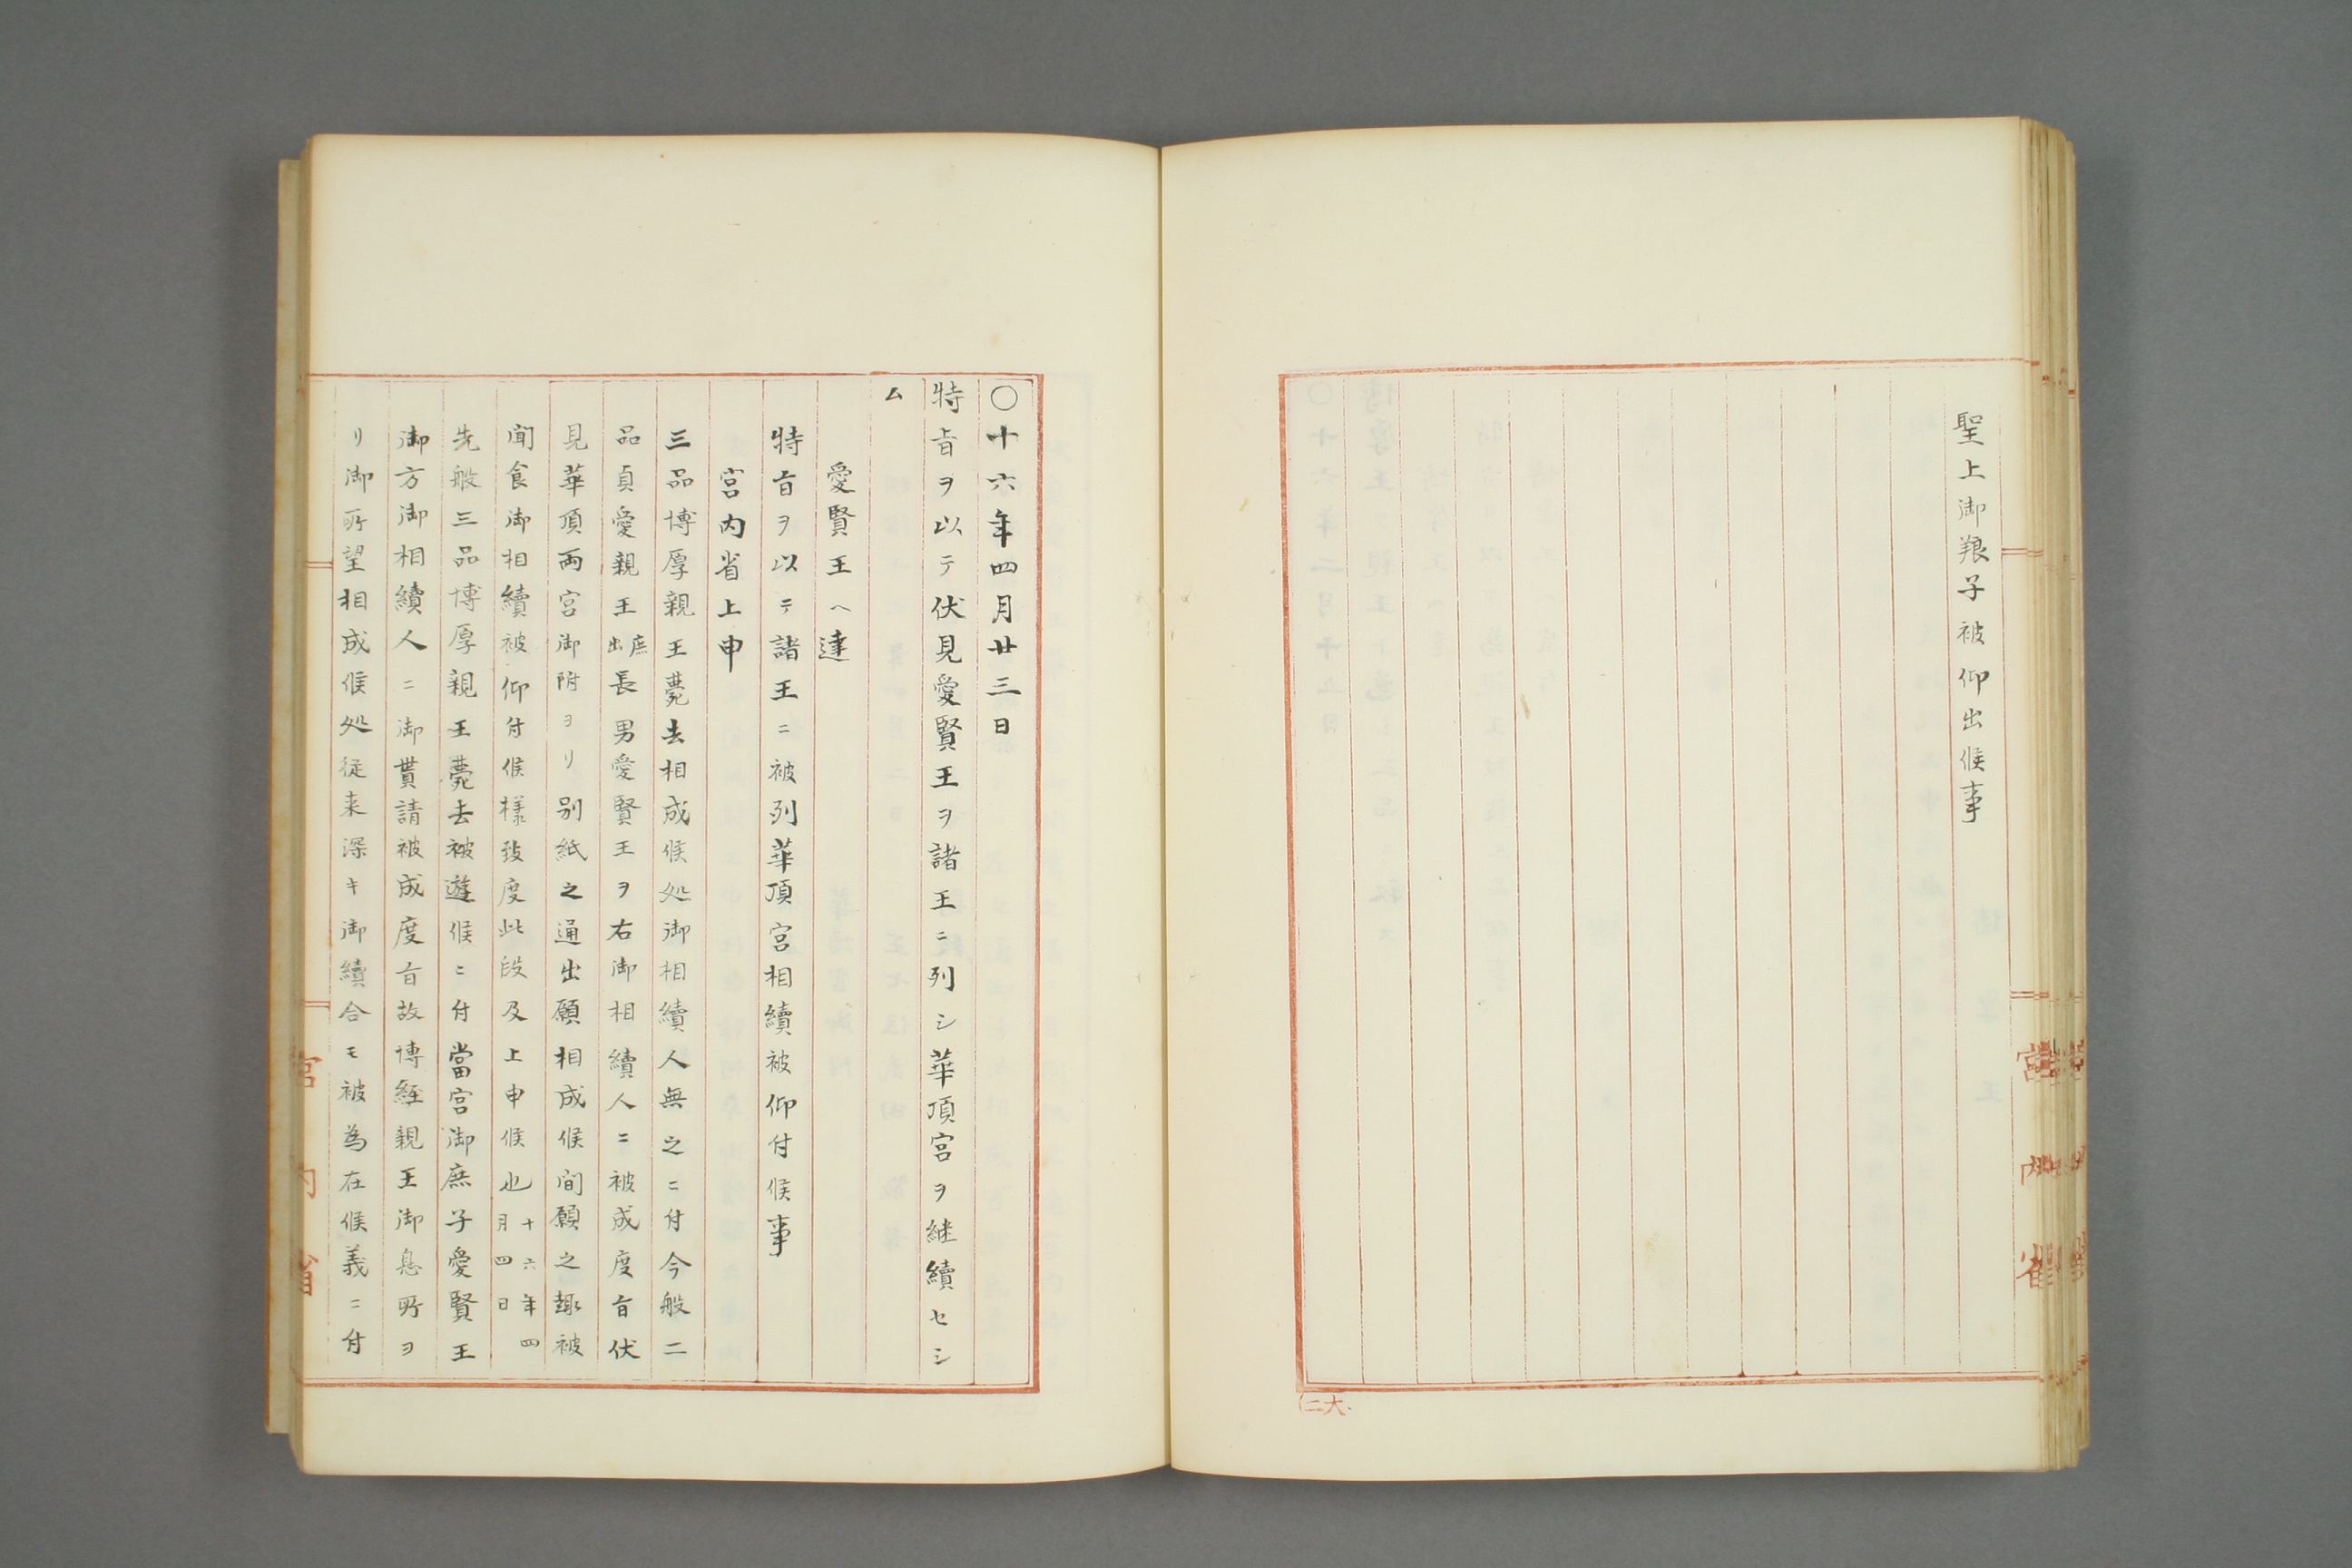 聖上御猴子被仰出候事
宮内省
〇十六年四月廿三日
特旨ヲ以テ伏見愛賢王ヲ諸王ニ列シ華頂宮ヲ継續セシ
ム
愛賢王ヘ達
特旨ヲ以テ諸王ニ被列華頂宮相續被仰付候事
宮内省上申
三品博厚親王薨去相成候処御相續人無之ニ付今般二
品貞愛親王庶出長男愛賢王ヲ右御相續人ニ被成度旨伏
見華頂両宮御附ヨリ別紙之通出願相成候间願之趣被
聞食御相續被仰付候様致度此段及上申候也十六年四月四日
先般三品博厚親王薨去被遊候ニ付當宮御庶子愛賢王
御方御相續人ニ御貰請被成度旨故博経親王御息所ヨ
リ御所望相成候処従来深キ御續合モ被為在候義ニ付
宮内省